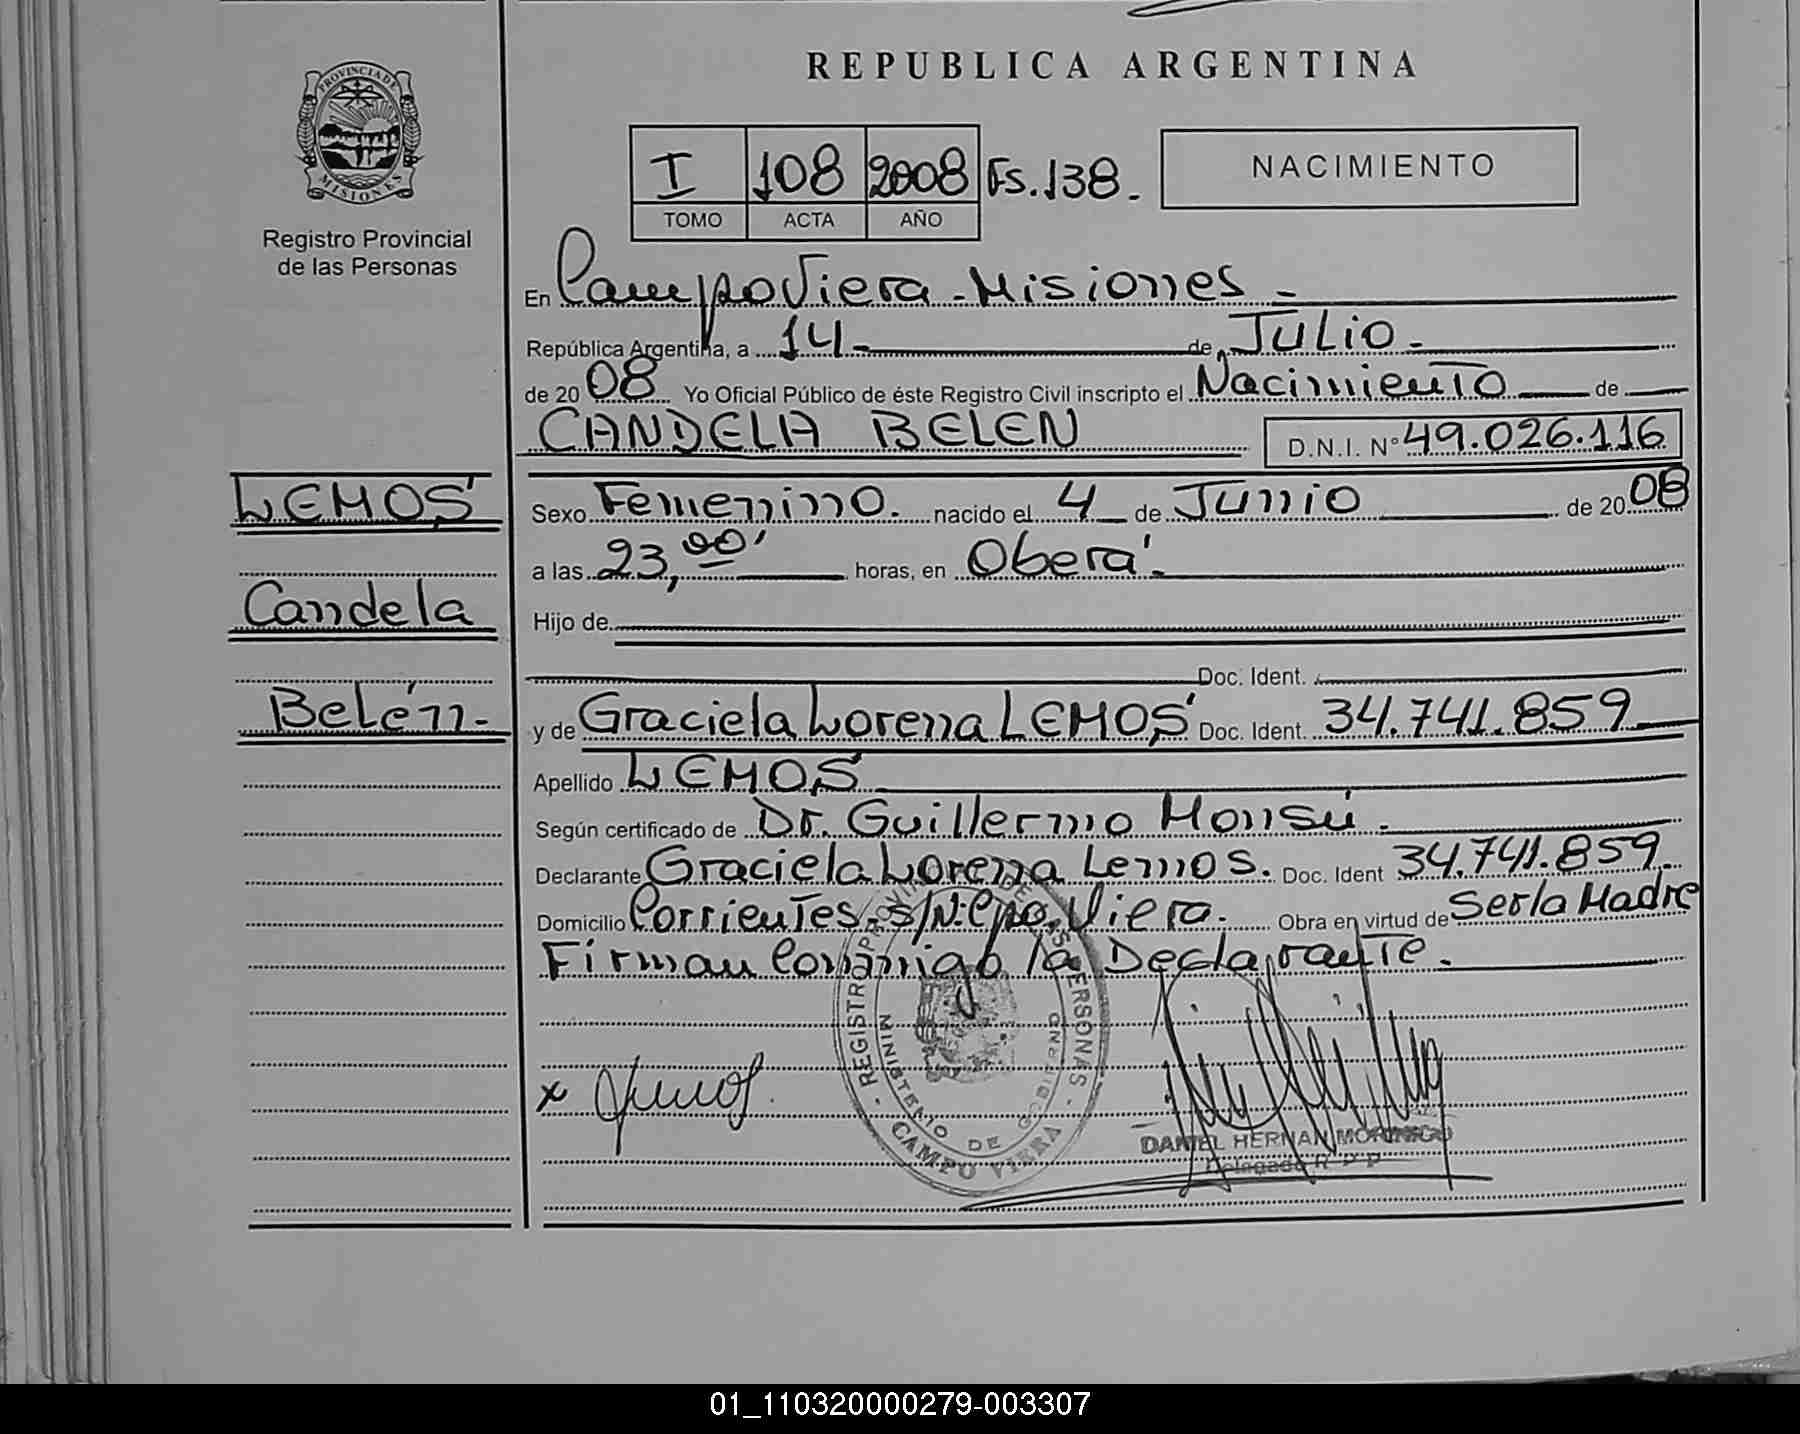 REPUBLICA ARGENTINA
PROVINCIA DE
MISIONES
Registro Provincial
de las Personas
I 108 2008 Fs. 138.-
TOMO ACTA AÑO
NACIMIENTO
En Campo Viera - Misiones -
República Argentina, a 14 - de JULIO -
de 20 08 Yo Oficial Público de éste Registro Civil inscripto el Nacimiento de
CANDELA BELEN D.N.I. N° 49.026.116
LEMOS
Candela
Belén.-
Sexo Femenino. nacido el 4 de Junio de 20 08
a las 23,00' horas, en Oberá.-
Hijo de
Doc. Ident.
y de Graciela Lorena LEMOS Doc. Ident. 34.741.859
Apellido LEMOS
Según certificado de Dr. Guillermo Monsú.-
Declarante Graciela Lorena Lemos. Doc. Ident 34.741.859
Domicilio Corrientes. s/N. Cpo. Viera. Obra en virtud de Ser la Madre
Firman Conmigo la Declarante.
x
REGISTRO PROVINCIAL DE LAS PERSONAS
MINISTERIO DE GOBIERNO
- CAMPO VIERA -
DANIEL HERNAN MORINIGO
Delegado R P P
01_110320000279-003307